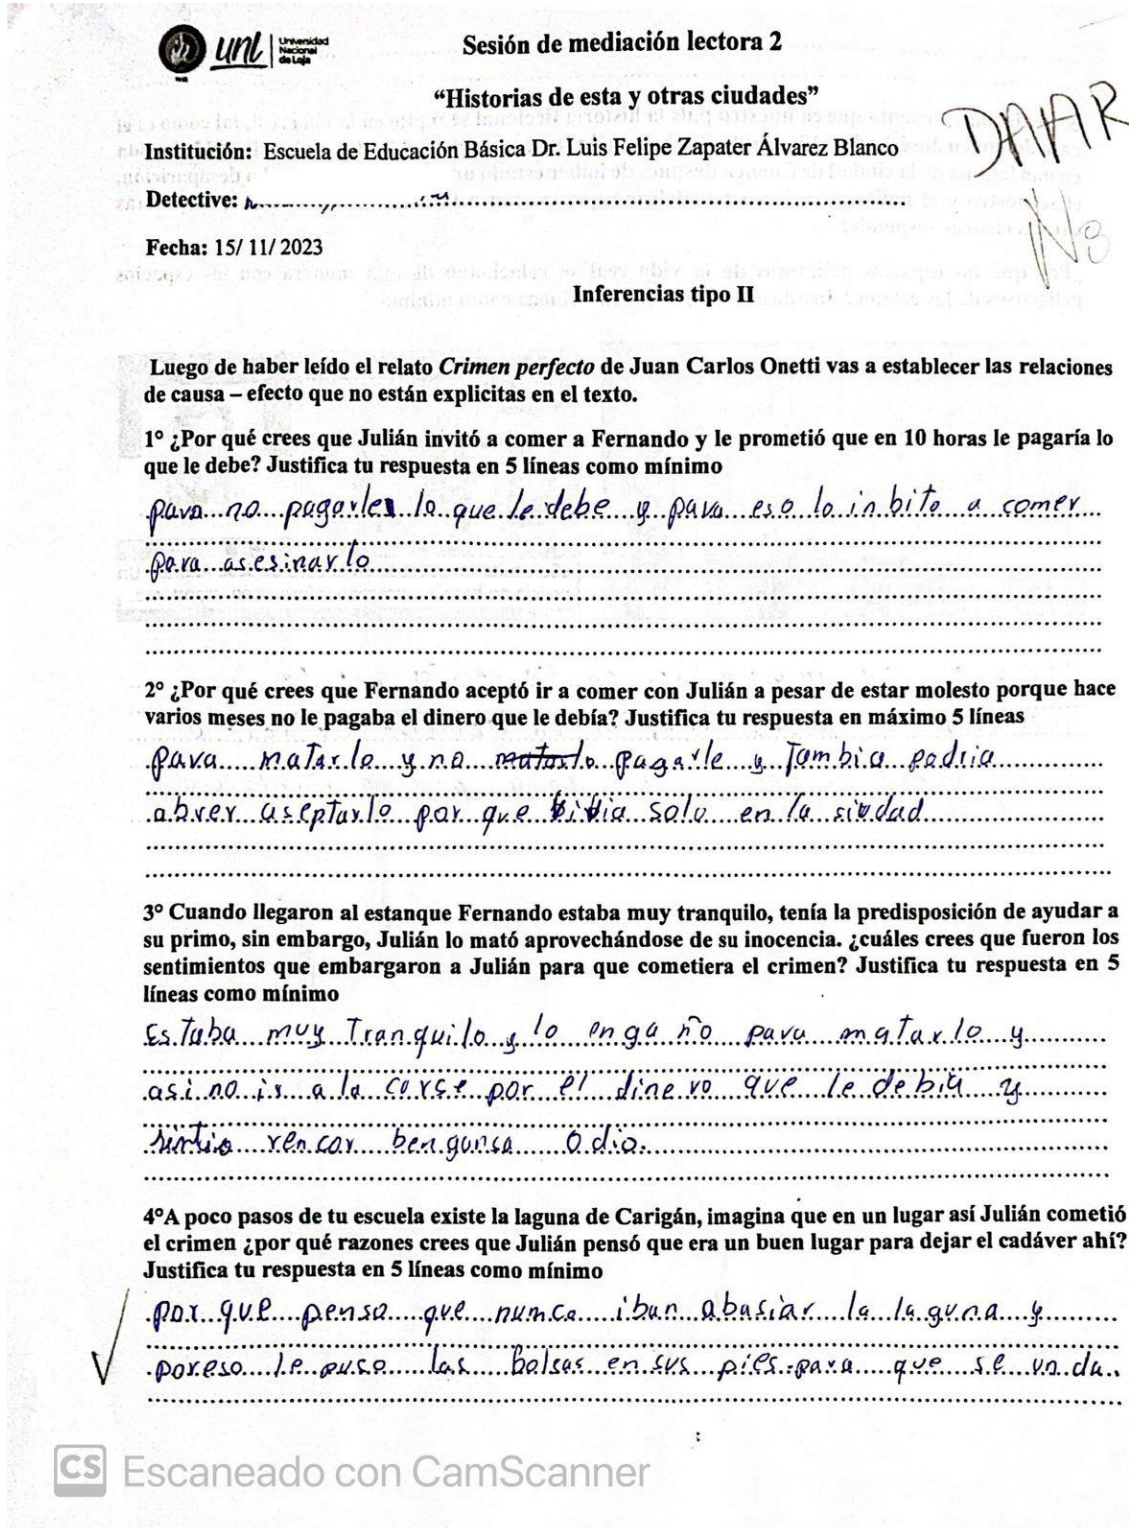 unl
Universidad
Nacional
de Loja
Sesión de mediación lectora 2
“Historias de esta y otras ciudades”
DAAR
Institución: Escuela de Educación Básica Dr. Luis Felipe Zapater Álvarez Blanco
Detective:
N8
Fecha: 15/ 11/ 2023
Inferencias tipo II
Luego de haber leído el relato Crimen perfecto de Juan Carlos Onetti vas a establecer las relaciones
de causa – efecto que no están explicitas en el texto.
1º ¿Por qué crees que Julián invitó a comer a Fernando y le prometió que en 10 horas le pagaría lo
que le debe? Justifica tu respuesta en 5 líneas como mínimo
para no pagarles lo que le debe y para eso lo inbito a comer
para asesinarlo
2º ¿Por qué crees que Fernando aceptó ir a comer con Julián a pesar de estar molesto porque hace
varios meses no le pagaba el dinero que le debía? Justifica tu respuesta en máximo 5 líneas
para matarlo y no matarlo pagarle y Tambia podria
abrer aseptarlo por que bibia solo en la siudad
3º Cuando llegaron al estanque Fernando estaba muy tranquilo, tenía la predisposición de ayudar a
su primo, sin embargo, Julián lo mató aprovechándose de su inocencia. ¿cuáles crees que fueron los
sentimientos que embargaron a Julián para que cometiera el crimen? Justifica tu respuesta en 5
líneas como mínimo
Estaba muy Tranquilo y lo engaño para matarlo y
asi no is a la corse por el dinero que le debia y
sintio rencor bengansa Odio.
4ºA poco pasos de tu escuela existe la laguna de Carigán, imagina que en un lugar así Julián cometió
el crimen ¿por qué razones crees que Julián pensó que era un buen lugar para dejar el cadáver ahí?
Justifica tu respuesta en 5 líneas como mínimo
por que penso que numca iban abasiar la laguna y
poreso le puso las bolsas en sus pies para que se unda
CS Escaneado con CamScanner